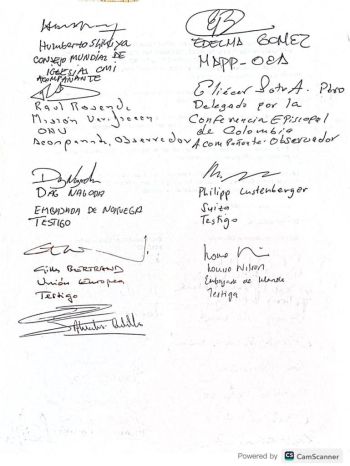 Humberto Shikiya
CONSEJO MUNDIAL DE
IGLESIAS CMI
ACOMPAÑANTE
EDELMA GOMEZ
MAPP-OEA
Raul Rosende
Misión Verificacion
ONU
Acompañante, Observador
Eliécer Soto A. Pbro
Delegado por la
Conferencia Episcopal
de Colombia
Acompañante-Observador
DAG NAGODA
EMBAJADA DE NORUEGA
TESTIGO
Philipp Lustenberger
Suiza
Testigo
Gilles BERTRAND
Unión Europea
Testigo
Louise Wilson
Embajada de Irlanda
Testiga
Powered by CS CamScanner